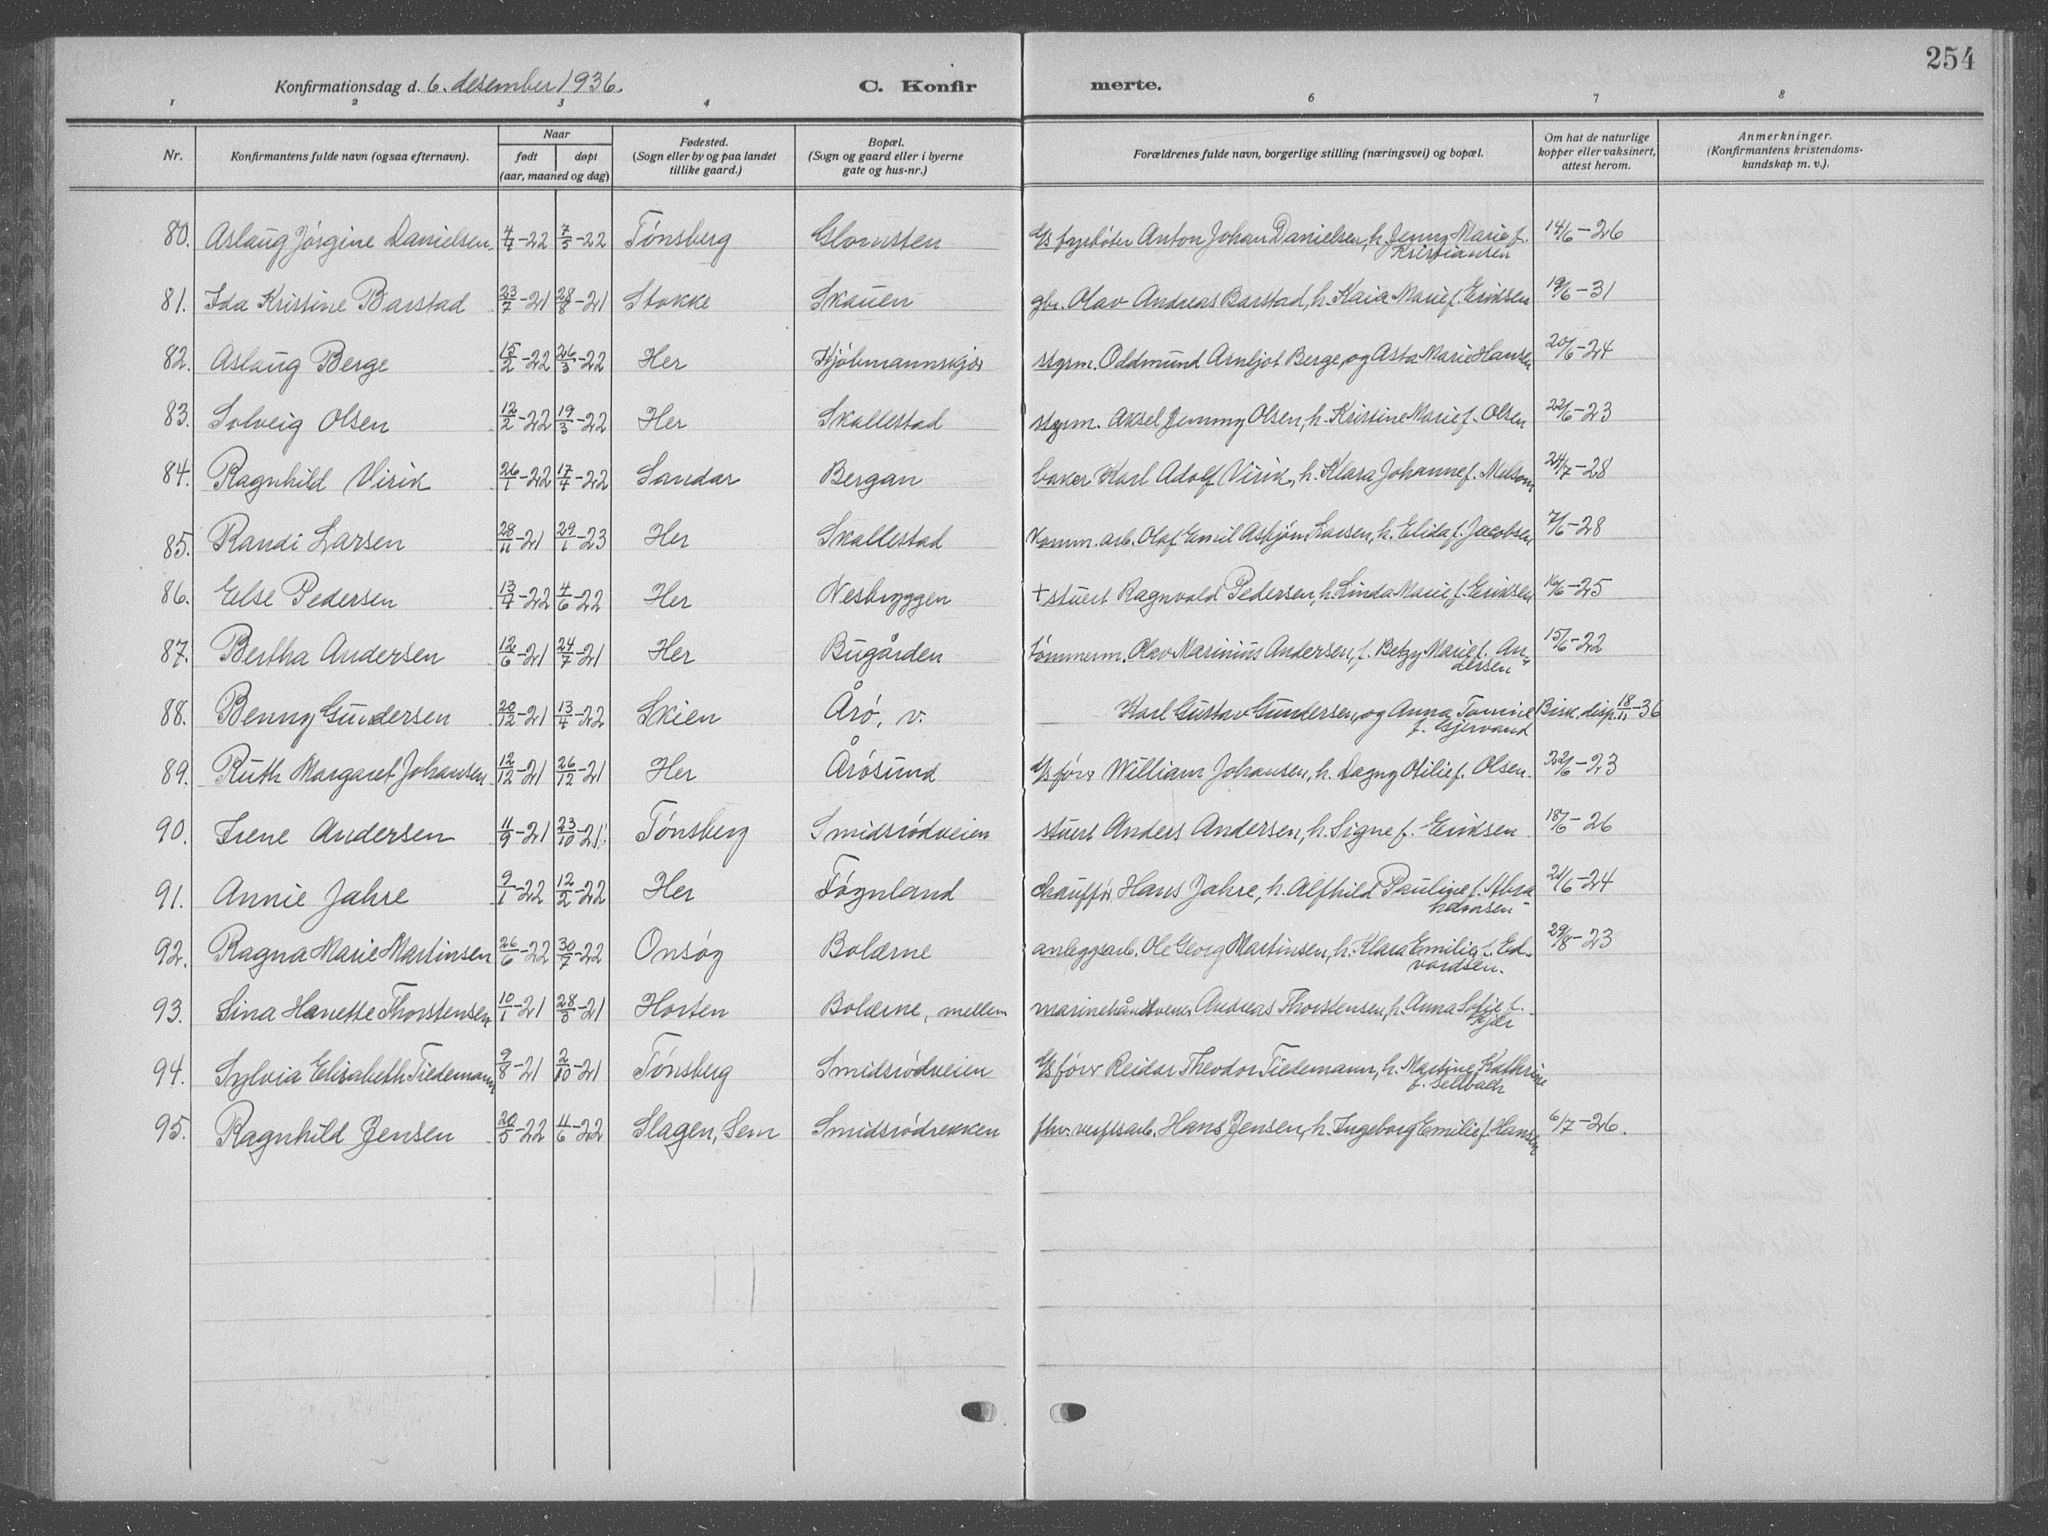 254
Konfirmationsdag d. 6. desember 1936.
C. Konfir merte.
1 2 3 4 6 7 8
Nr.
Konfirmantens fulde navn (ogsaa efternavn).
Naar
født døpt
(aar, maaned og dag)
Fødested.
(Sogn eller by og paa landet
tillike gaard.)
Bopæl.
(Sogn og gaard eller i byerne
gate og hus-nr.)
Forældrenes fulde navn, borgerlige stilling (næringsvei) og bopæl.
Om hat de naturlige
kopper eller vaksinert,
attest herom.
Anmerkninger.
(Konfirmantens kristendoms-
kundskap m. v.).
80. Aslaug Jørgine Danielsen. 4/4-22 7/5-22 Tønsberg Glomsten fyrbøter Anton Johan Danielsen, h. Jenny Marie f. 14/6-26
Kristiansen
81. Ida Kristine Barstad 23/7-21 28/8-21 Stokke Skauen gbr. Olav Andreas Barstad, h. Kaia Marie f. Eriksen 19/6-31
82. Aslaug Berge 15/2-22 26/3-22 Her Kjøbmannskjær styrm. Oddmund Arnljot Berge, og Asta Marie Hansen 20/6-24
83. Solveig Olsen 12/2-22 19/3-22 Her Skallestad styrm. Aksel Jemmy Olsen, h. Kristine Marie f. Olsen 22/6-23
84. Ragnhild Virik 26/1-22 17/4-22 Sandar Bergan baker Karl Adolf Virik, h. Klara Johanne f. Melsom 24/7-28
85. Randi Larsen 28/11-21 29/1-23 Her Skallestad komm. arb. Olaf Emil Asbjørn Larsen, h. Elida f. Jacobsen 7/6-28
86. Else Pedersen 13/4-22 4/6-22 Her Nesbryggen + stuert Ragnvald Pedersen, h. Linda Marie f. Eriksen 16/6-25
87. Bertha Andersen 12/6-21 24/7-21 Her Bugården tømmerm. Olav Marinius Andersen, f. Betzy Marie f. An- 15/6-22
dersen
88. Benny Gundersen 20/12-21 13/4-22 Skien Årø, v. Karl Gustav Gundersen, og Anna Tomine Bisk. disp. 18/11-36
f. Gjervand
89. Ruth Margaret Johansen 12/12-21 26/12-21 Her Årøsund fører William Johansen, h. Dagny Otilie f. Olsen. 22/6-23
90. Irene Andersen 11/9-21 23/10-21 Tønsberg Smidsrødveien stuert Anders Andersen, h. Signe f. Eriksen. 18/6-26
91. Annie Jahre 9/1-22 12/2-22 Her Føynland chauffør Hans Jahre, h. Alfhild Pauline f. Abra- 21/6-24
hamsen
92. Ragna Marie Martinsen 26/6-22 30/7-22 Onsøy Bolærne anleggsarb. Ole Georg Martinsen, h. Klara Emilie f. Ed- 29/8-23
vardsen.
93. Sina Hanette Thorstensen 10/1-21 28/3-21 Horten Bolærne, mellem marinehåndtverker Andreas Thorstensen, h. Anna Sofie f.
Kjær
94. Sylvia Elisabeth Tiedemann 9/8-21 2/10-21 Tønsberg Smidsrødveien fører Reidar Theodor Tiedemann, h. Martine Kathrine
f. Sellbach
95. Ragnhild Jensen 20/5-22 11/6-22 Slagen, Sem Smidsrødrekken fhv. verftsarb. Hans Jensen, h. Ingeborg Emilie f. Hansen 6/7-26.